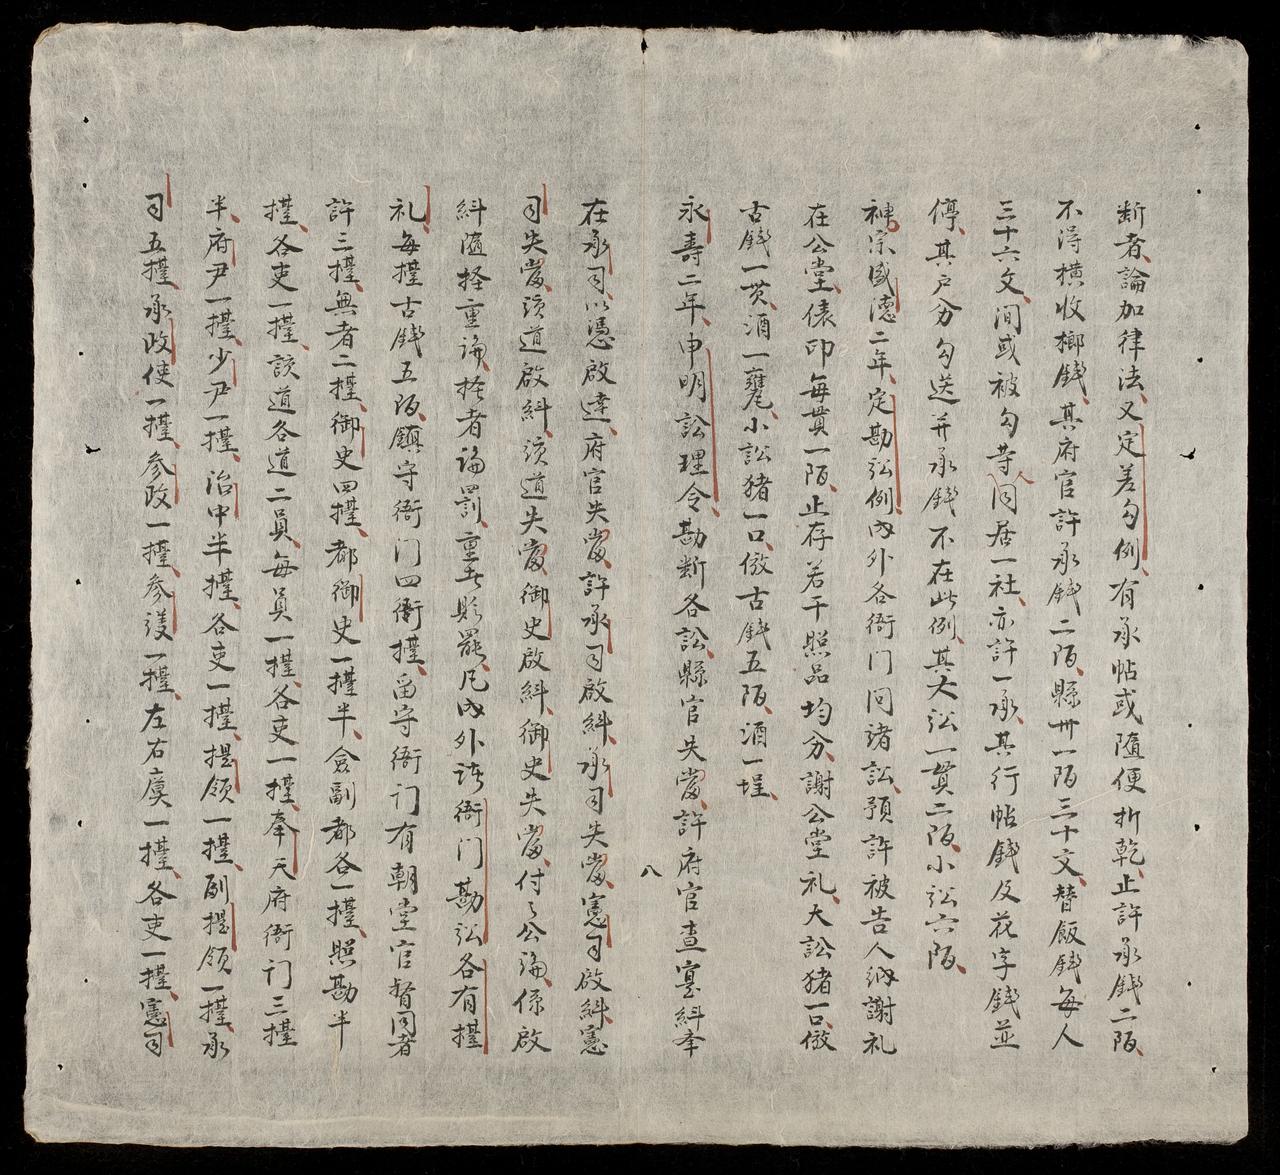 斷者論加律法又定差勾例有承帖或隨便折乾止許承錢二陌
不得橫收榔錢其府官許承錢二陌縣卅一陌三十文替飯錢每人
三十六文間或被勾苛人同居一社亦許一承其行帖錢及花字錢並
停其戶分勾送并承錢不在此例其大訟一貫二陌小訟六陌
神宗盛德二年定勘訟例內外各衙門同諸訟預許被告人納謝礼
在公堂俵印每貫一陌止存若干照品均分謝公堂礼大訟猪一口倣
古錢一貫酒一甕小訟猪一口倣古錢五陌酒一埕
永壽二年申明訟理令勘斷各訟縣官失當許府官查寔糾奉
八
在承司以憑啟達府官失當許承司啟糾承司失當憲司啟糾憲
司失當該道啟糾該道失當御史啟糾御史失當付之公論係啟
糾隨擇重論 者論罰重者貶罷凡內外諸衙門勘訟各有擡
礼每擡古錢五陌鎮守衙門四衝擡留守衙门有朝堂官督同者
許三擡無者二擡御史四擡都御史一擡半僉副都各一擡照勘半
擡各吏一擡該道各道二員每員一擡各吏一擡奉天府衙门三擡
半府尹一擡少尹一擡治中半擡各吏一擡提領一擡副提領一擡承
司五擡承政使一擡參政一擡參議一擡左右虞一擡各吏一擡憲司